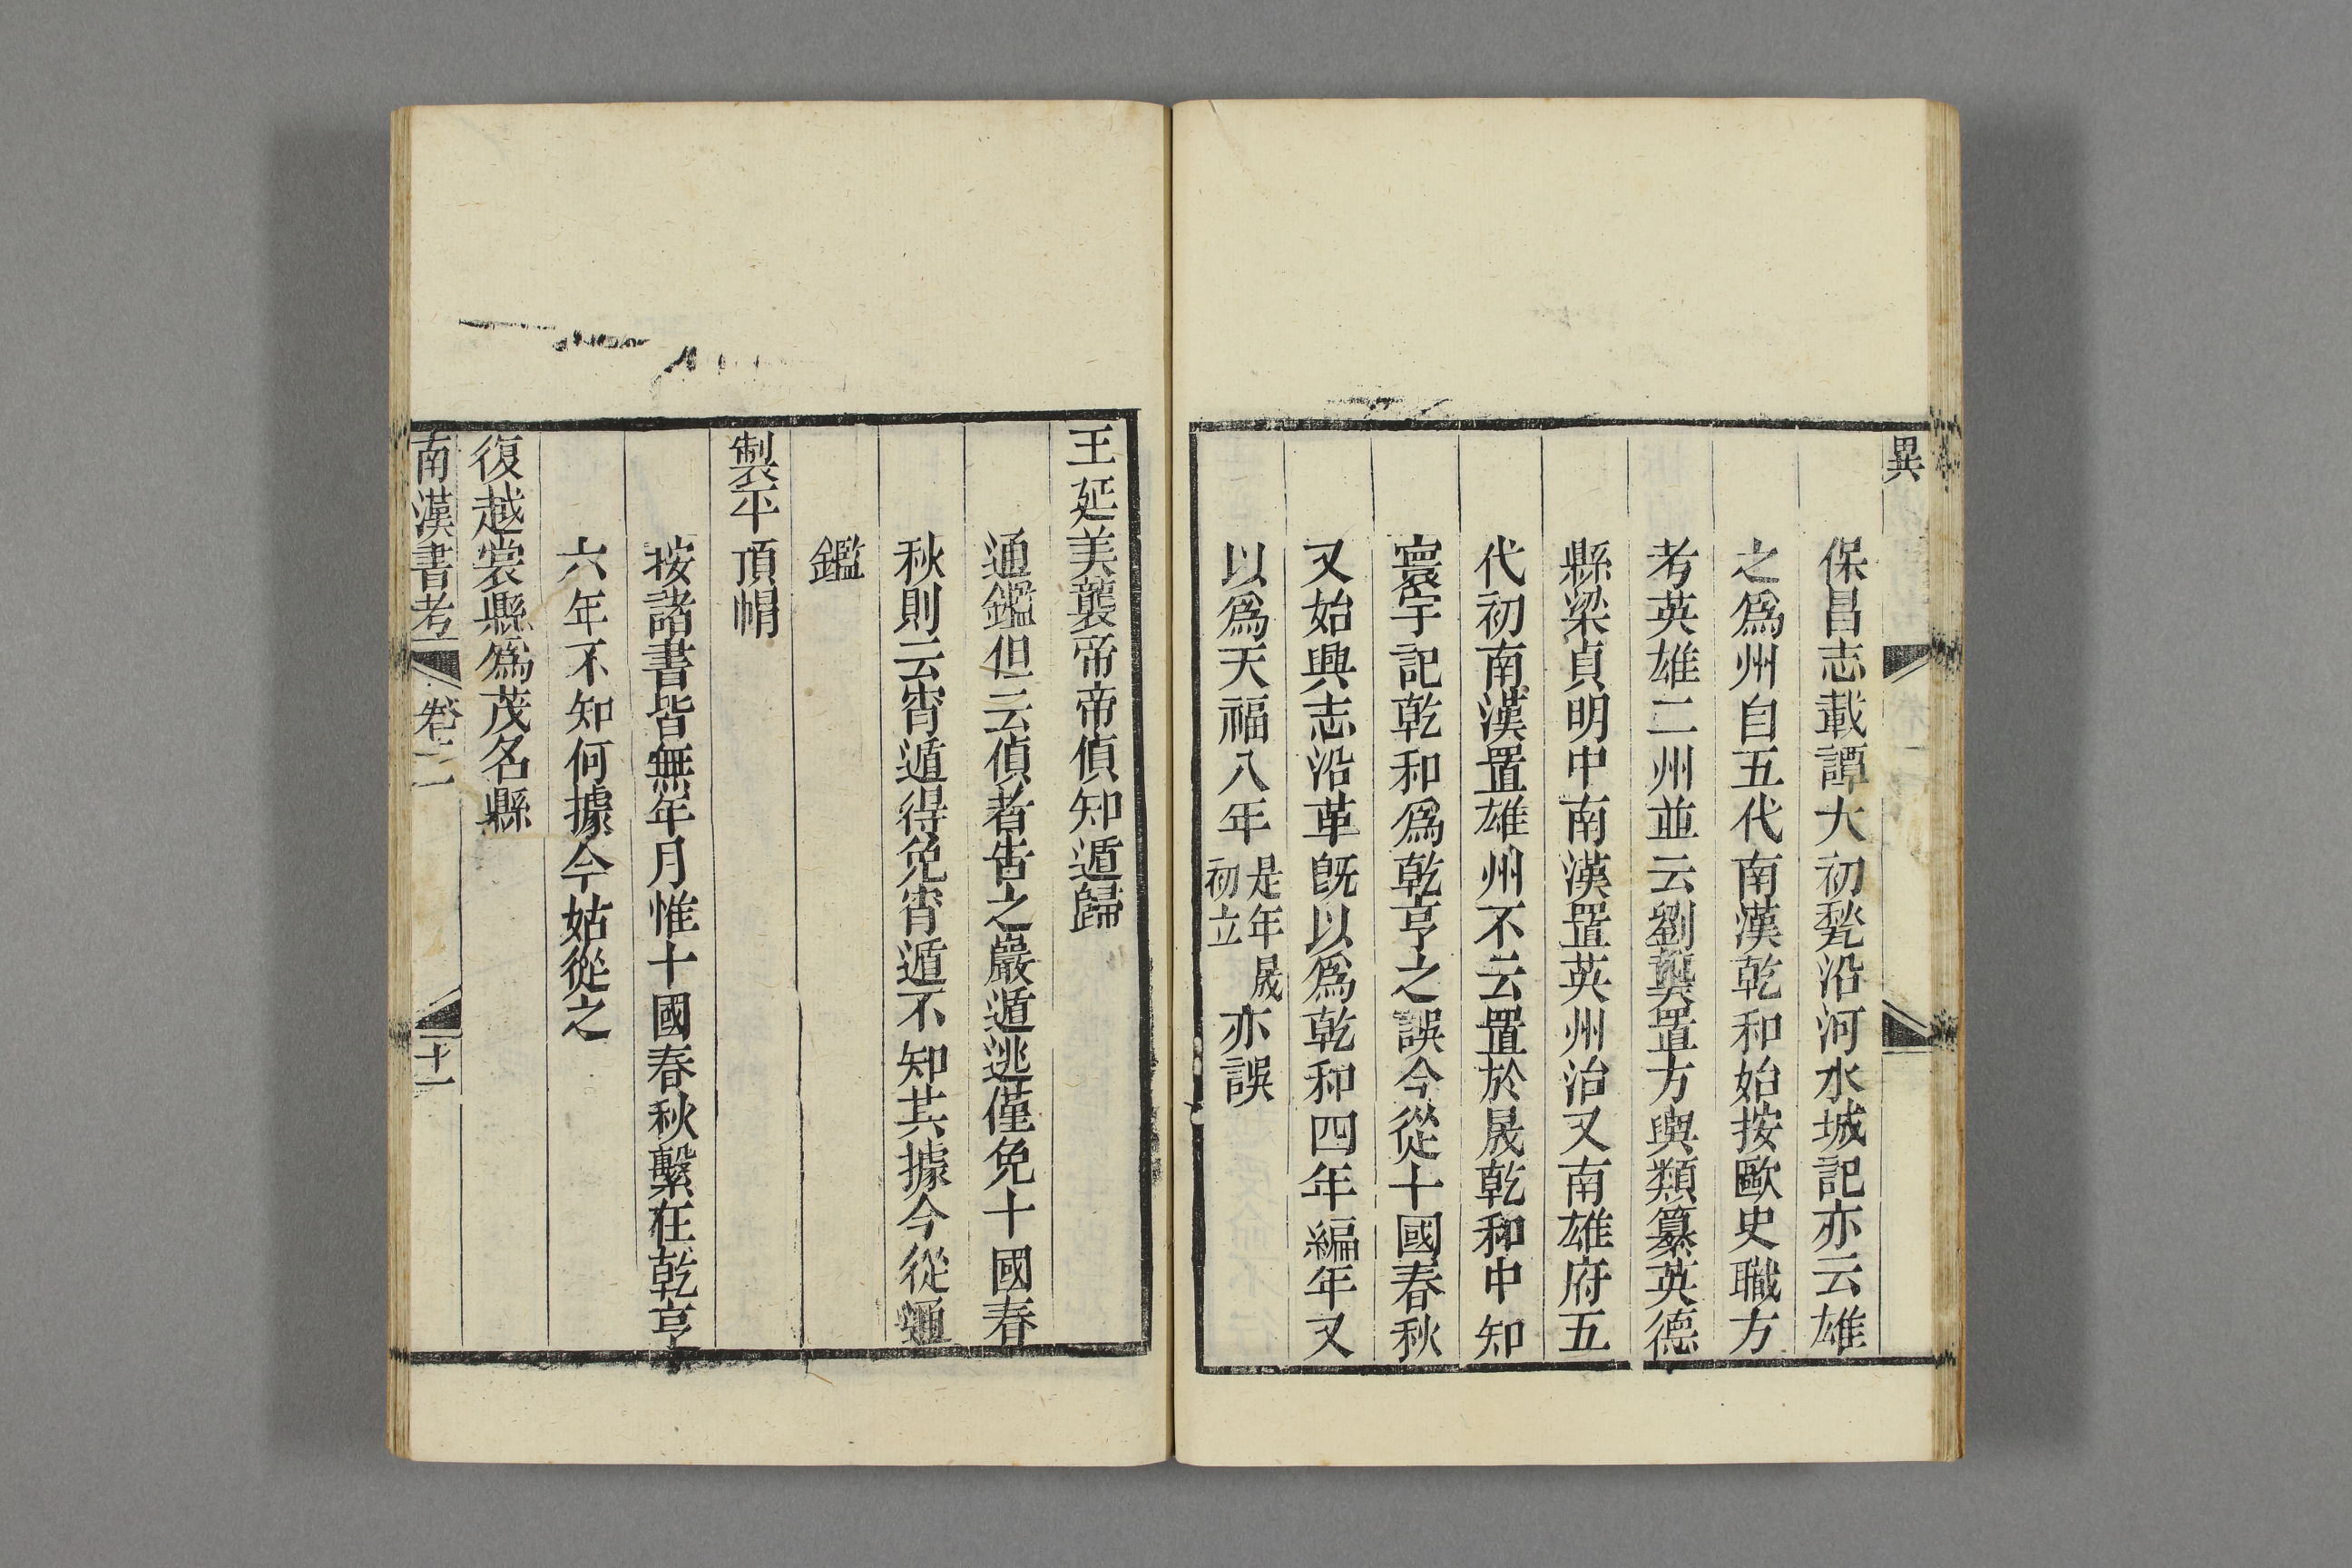 異
保昌志載譚大初甃沿河水城記亦云雄
之爲州自五代南漢乾和始按歐史職方
考英雄二州並云劉龑置方輿類纂英德
縣梁貞明中南漢置英州治又南雄府五
代初南漢置雄州不云置於晟乾和中知
寰宇記乾和爲乾亨之誤今從十國春秋
又始興志沿革旣以爲乾和四年編年又
以爲天福八年是年晟初立亦誤
王延美襲帝帝偵知遁歸
通鑑但云偵者告之巖遁逃僅免十國春
秋則云宵遁得免宵遁不知其據今從通
鑑
製平頂帽
按諸書皆無年月惟十國春秋繫在乾亨
六年不知何據今姑從之
復越裳縣爲茂名縣
南漢書考 卷二 十一